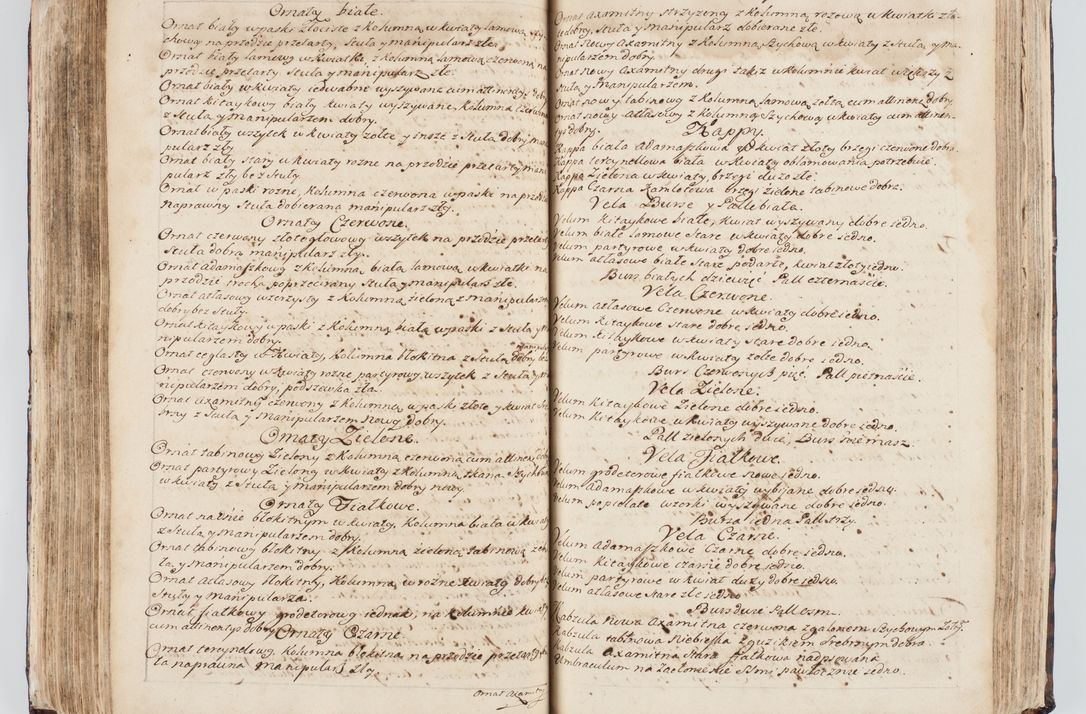 Ornaty białe.
Ornat biały w paski złociste z kolumną w kwiaty lamową
chową na przodzie przetarty, stuła y manipularz złe.
Ornat biały lamowy w kwiatki z kolumną lamową czerwoną na
przodzie przetarty stuła y manipularz złe.
Ornat biały w kwiaty jedwabne wyszywane cum attinentys dobry
Ornat kitaykowy biały kwiaty wyszywane, kolumna czerwona
z stułą y manipularzem dobry.
Ornat biały wszytek w kwiaty żołte y insze z stułą dobry
pularz zły
Ornat biały stary w kwiaty rozne na przodzie przetarty
pularz zły bez stuły.
Ornat w paski rozne, kolumna czerwona w paski na przodzie
naprawny stuła dobierana manipularz zły.
Ornaty Czerwone.
Ornat czerwony złotogłowowy wszytek na przodzie przetarty
stuła dobra manipularz zły.
Ornat adamaszkowy z kolumną białą lamową w kwiatki na
przodzie trochą poprzecierany stuła y manipularz złe.
Ornat atlasowy wzorzysty z kolumną zieloną z manipularzem
dobry bez stuły.
Ornat kitaykowy w paski z kolumną białą w paski z stułą y
nipularzem dobry.
Ornat ceglasty w kwiaty, kolumna błękitna z stułą dobry bez
Ornat czerwony w kwiaty rozne partyrowy wszytek z stułą y
nipularzem dobry, podszewka zła.
Ornat axamitny czerwony z kolumną w paski złote y kwiat
brny z stułą y manipularzem nowy dobry.
Ornaty Zielone.
Ornat tabinowy zielony z kolumną czerwoną cum attinen: dobry
Ornat partyrowy zielony w kwiaty z kolumną tkaną
w kwiaty z stułą y manipularzem dobry nowy.
Ornaty Fiałkowe.
Ornat na dnie błękitnym w kwiaty, kolumna biała w kwiaty
z stułą y manipularzem dobry.
Ornat tabinowy błękitny z kolumną zieloną tabinową
tą, y manipularzem dobry.
Ornat atlasowy błękitny, kolumna w rozne kwiaty dobry bez
stuły y manipularza.
Ornat fiałkowy grodetorowy jednak; na kolumnie kwiaty
cum attinentys dobry. Ornaty Czarne
Ornat tercynelowy. kolumna błękitna na przodzie przetarty
ta naprawna manipularz zły.
Ornat Axamitny
Ornat axamitny strzyzony z kolumną rozową w kwiatki zła
dobry, stuła y manipularz dobierane złe.
Ornat nowy axamitny z kolumną szychową w kwiaty z stułą y ma-
nipularzem dobry.
Ornat nowy axamitny drugi takiz w kolumnie kwiat większy z
stułą y manipularzem.
Ornat nowy tabinowy z kolumną lamową żołtą cum attinen: dobry
Ornat nowy atlasowy z kolumną szychową w kwiaty cum attinen-
tys dobry.
Kappy.
Kappa biała adamaszkowa kwiat złoty brzegi czerwone dobra
Kappa tercynellowa biała w kwiaty obłamowania potrzebuie.
Kappa zielona w kwiaty, brzegi duzo złe.
Kappa czarna kamlotowa brzegi zielone tabinowe dobra.
Vela Bursæ y Pallæ białe.
Velum kitaykowe białe, kwiat wyszywany dobre jedno.
Velum białe lamowe stare w kwiaty dobre jedno.
Velum partyrowe w kwiaty dobre jedno.
Velum atlasowe białe stare podarte, kwiat złoty jedno.
Burs białych dziewięć Pall czternaście.
Vela Czerwone.
Velum atłasowe czerwone w kwiaty dobre jedno.
Velum kitaykowe stare dobre jedno.
Velum kitaykowe w kwiaty stare dobre jedno
Velum partyrowe w kwiaty żołte dobre jedno.
Burs Czerwonych pięć Pall pietnaście.
Vela Zielone.
Velum kitaykowe zielone dobre jedno.
Velum kitaykowe w kwiaty wyszywane dobre jedno.
Pall zielonych dwie, Burs
Vela Fiałkowe.
Velum grodetorowe fiałkowe nowe jedno.
Velum adamaszkowe w kwiaty wybijane dobre jedno.
Velum popielate wzorki wyszywane dobre jedno.
Bursa jedna Pall trzy.
Vela Czarne.
Velum adamaszkowe czarne dobre jedno.
Velum kitaykowe czarne dobre jedno.
Velum partyrowe w kwiat duży dobre jedno.
Velum atłasowe stare złe jedno
Burs dwie Pall osm.
Kabzula nowa axamitna czerwona z galonem szychowym
Kabzula tabinowa niebieska z guzikiem srebrnym dobra
Kabzula axamitna stara fiałkowa nadpsowana
Umbraculum na